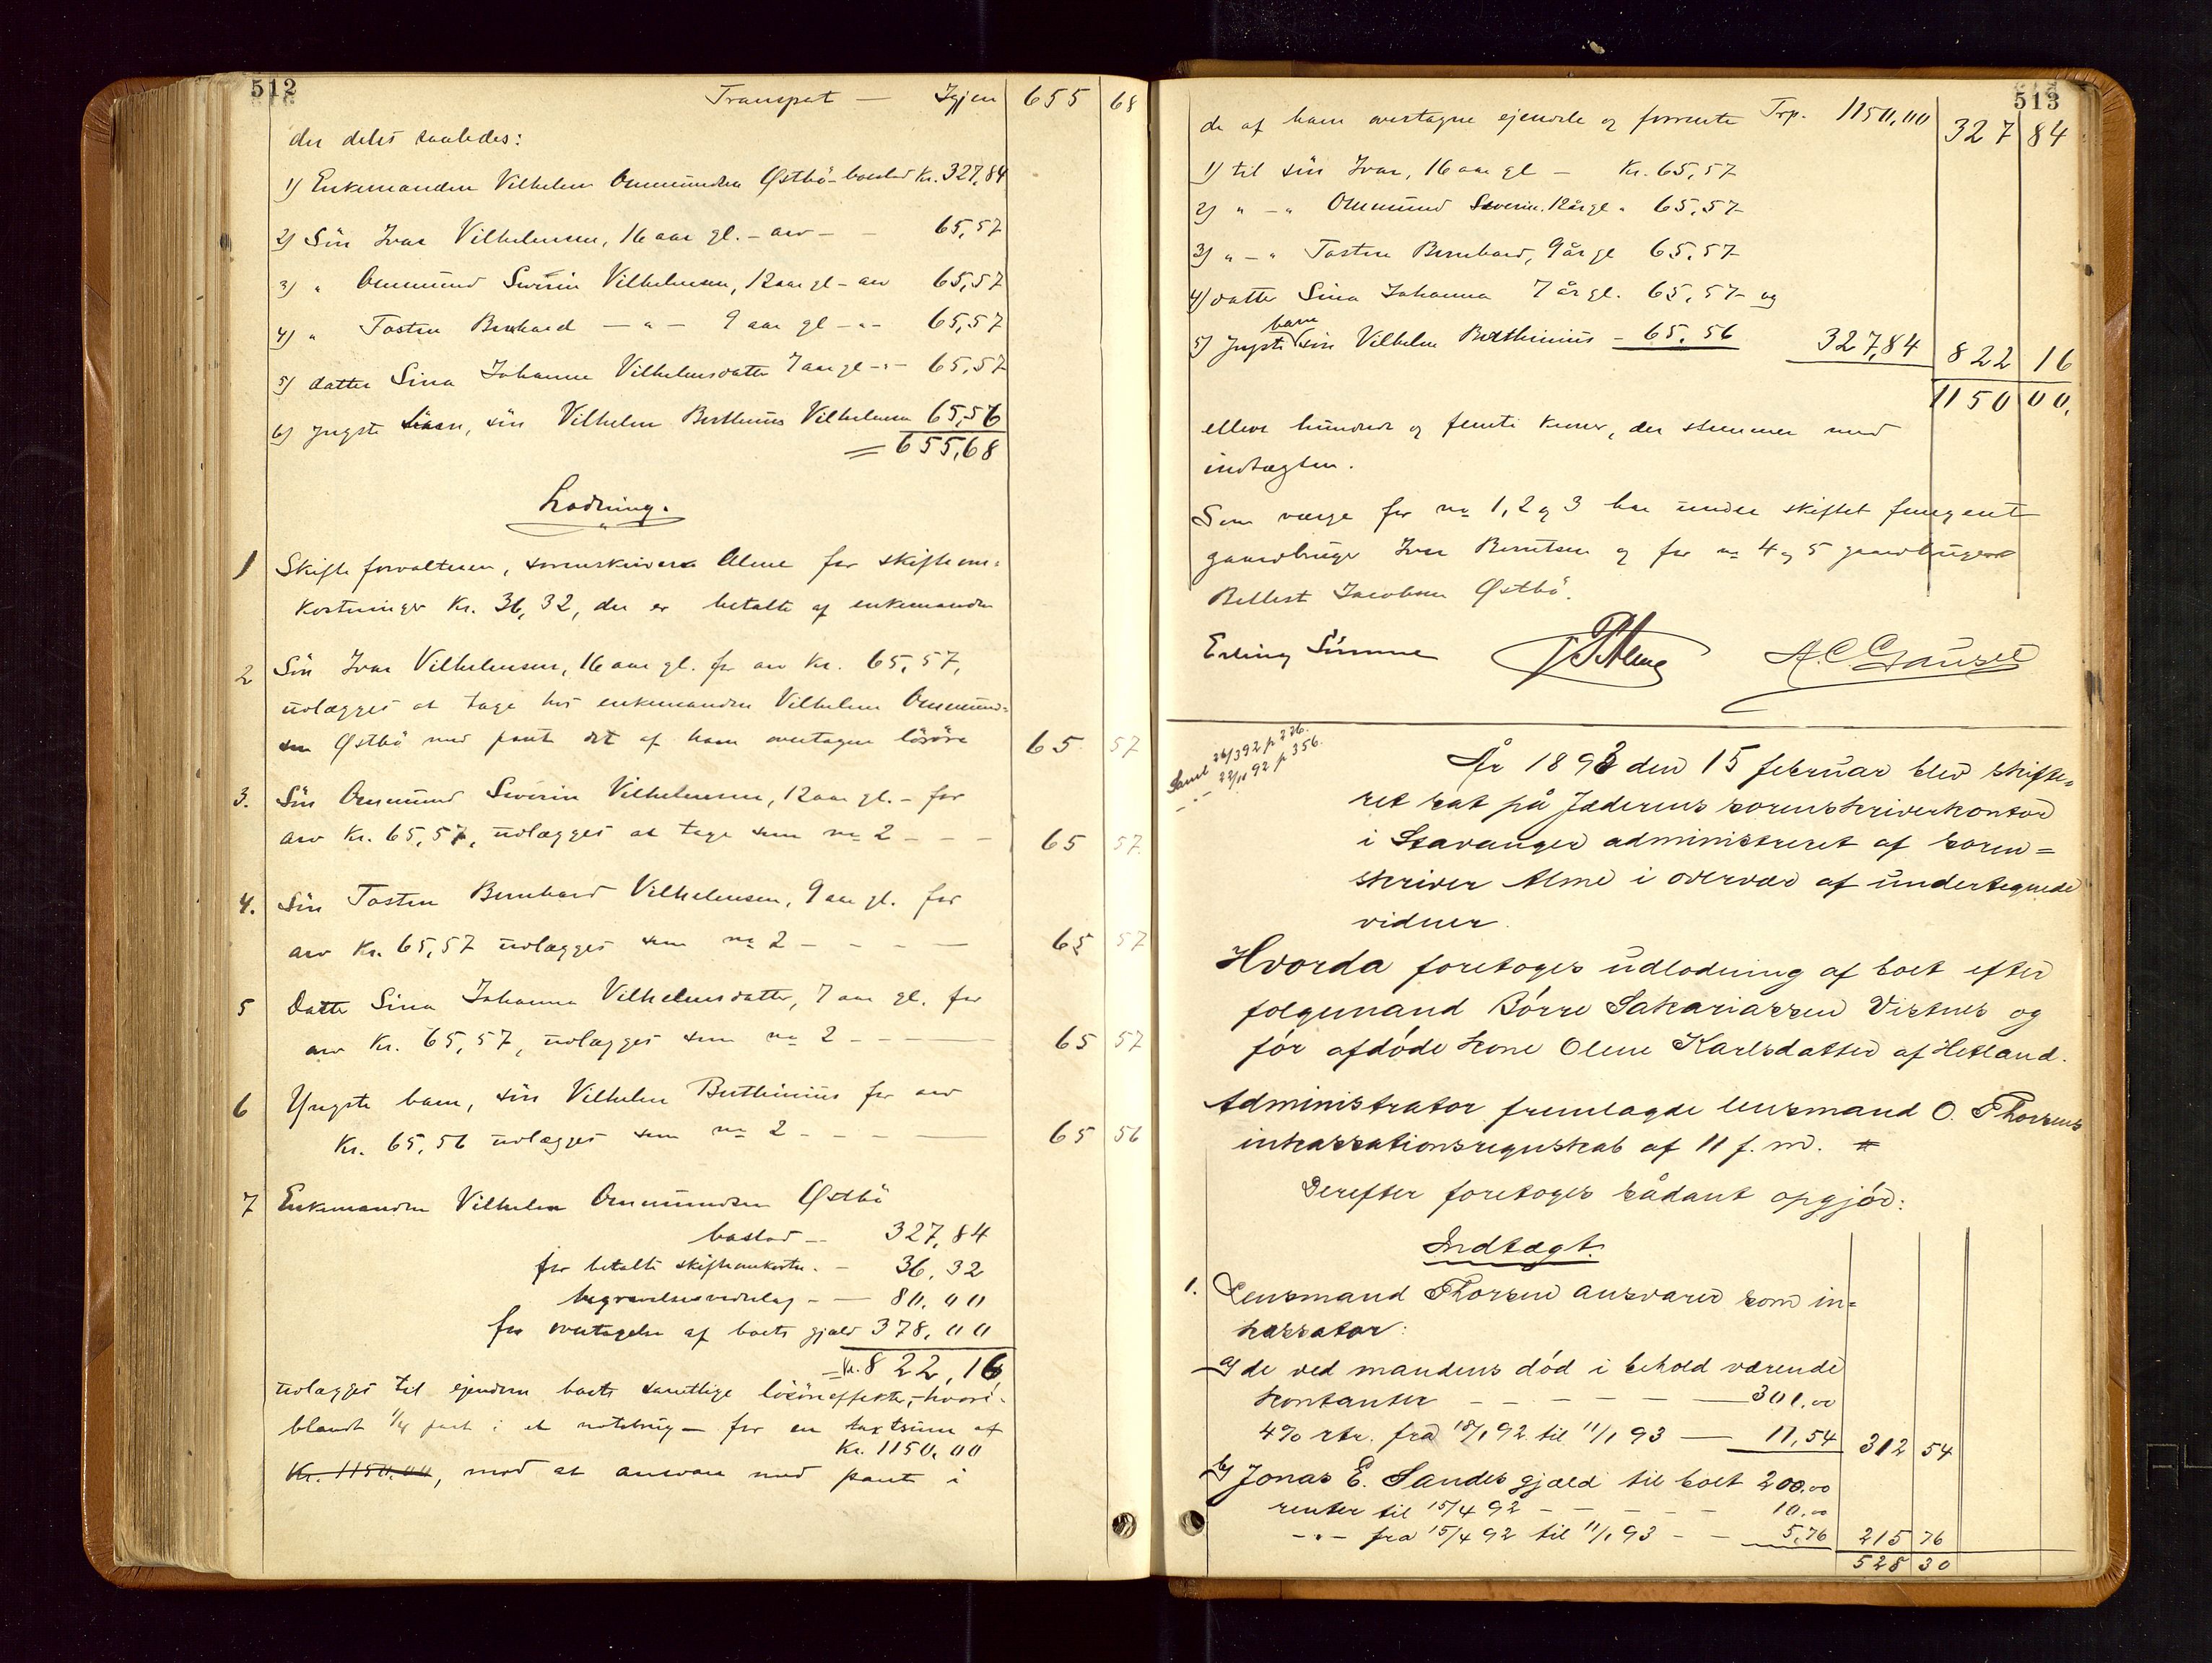 512
Transport — Igjen 655 68
der deles saaledes:
1) Enkemanden Vilhelm Ommundsen Østbö - boeslod Kr. 327,84
2) Sön Ivar Vilhelmsen, 16 aar gl. - arv - - 65,57
3) " Ommund Severin Vilhelmsen, 12 aar gl - arv 65,57
4) " Tosten Bernhard — " — 9 aar gl - " - 65,57
5) datter Sina Johanne Vilhelmsdatter 7 aar gl - " - 65,57
6) yngste barn, sön Vilhelm Berthinius Vilhelmsen 65,56
= 655,68
Lodning.
1 Skifteforvalteren, sorenskriver Alme for skifteom-
kostninger Kr. 36,32, der er betalte af enkemanden
2 Sön Ivar Vilhelmsen, 16 aar gl. for arv Kr. 65,57,
udlægges at tage hos enkemanden Vilhelm Ommund=
sen Østbö med pant i det af ham overtagne lösöre 65 57
3. Sön Ommund Severin Vilhelmsen, 12 aar gl. - for
arv Kr. 65,57, udlægges at tage som no 2 - - - 65 57.
4. Sön Tosten Bernhard Vilhelmsen, 9 aar gl. for
arv Kr. 65,57 udlægges som no 2 - - - — 65 57
5 Datter Sina Johanna Vilhelmsdatter, 7 aar gl. for
arv Kr. 65,57, udlægges som no 2 - - — 65 57
6 Yngste barn, sön Vilhelm Berthinius for arv
Kr. 65,56 udlægges som no 2 - - - — 65 56
7 Enkemanden Vilhelm Ommundsen Østbö
boslod — 327,84
for betalte skifteomkostn. - 36,32
begravelsesvederlag - — 80,00
for overtagelse af boets gjæld 378,00
= Kr. 822,16
udlægges til ejendom boets samtlige lösöreeffekter, - hvori-
blandt 1/4 part i et notebrug — for en taxtsum af
Kr. 1150,00
Kr. 1150.00, mod at ansvare med pant i
513
de af ham overtagne ejendele og forrente Trp. 1150,00 327 84
1) til sön Ivar, 16 aar gl — Kr. 65,57
2) " - " Ommund Severin. 12 år gl " 65,57
3) " - " Tosten Bernhard, 9 år gl 65,57
4) datter Sina Johanna 7 år gl. 65,57 og
5) yngste barn sön Vilhelm Berthinius - 65,56 327,84 822 16
1150 00.
elleve hundrede og femti kroner, der stemmer med
indtægten.
Som værge for no 1, 2 og 3 har under skiftet fungeret
gaardbruger Iver Berntsen og for no 4 og 5 gaardbruger
Bellest Jacobsen Østbö.
Erling Sömme Alme A. C. Gausel
Saml 26/3 92 p 226.
- " - 22/11 92 p 356.
År 1893 den 15 februar blev skifte-
ret sat på Jæderens sorenskriverkontor
i Stavanger administreret af soren=
skriver Alme i overvær af undertegnede
vidner.
Hvorda foretoges udlodning af boet efter
folgemand Börre Sakariassen Vistnes og
för afdöde kone Olene Karlsdatter af Hetland.
Administrator fremlagde lensmand O. Thorsens
inkassationsregnskab af 11 f. m. #
Derefter foretoges sådant opgjör:
Indtægt.
1. Lensmand Thorsen ansvarer som in=
kassator:
a) de ved mandens död i behold værende
kontanter - - - - — 301.00
4% rtr. fra 18/1 92 til 11/1 93 — 11,54 312 54
b) Jonas E. Sandes gjæld til boet 200.00
renter til 15/4 92 - - - - 10.00
- " - fra 15/4 92 til 11/1 93 - - 5,76 215 76
528 30